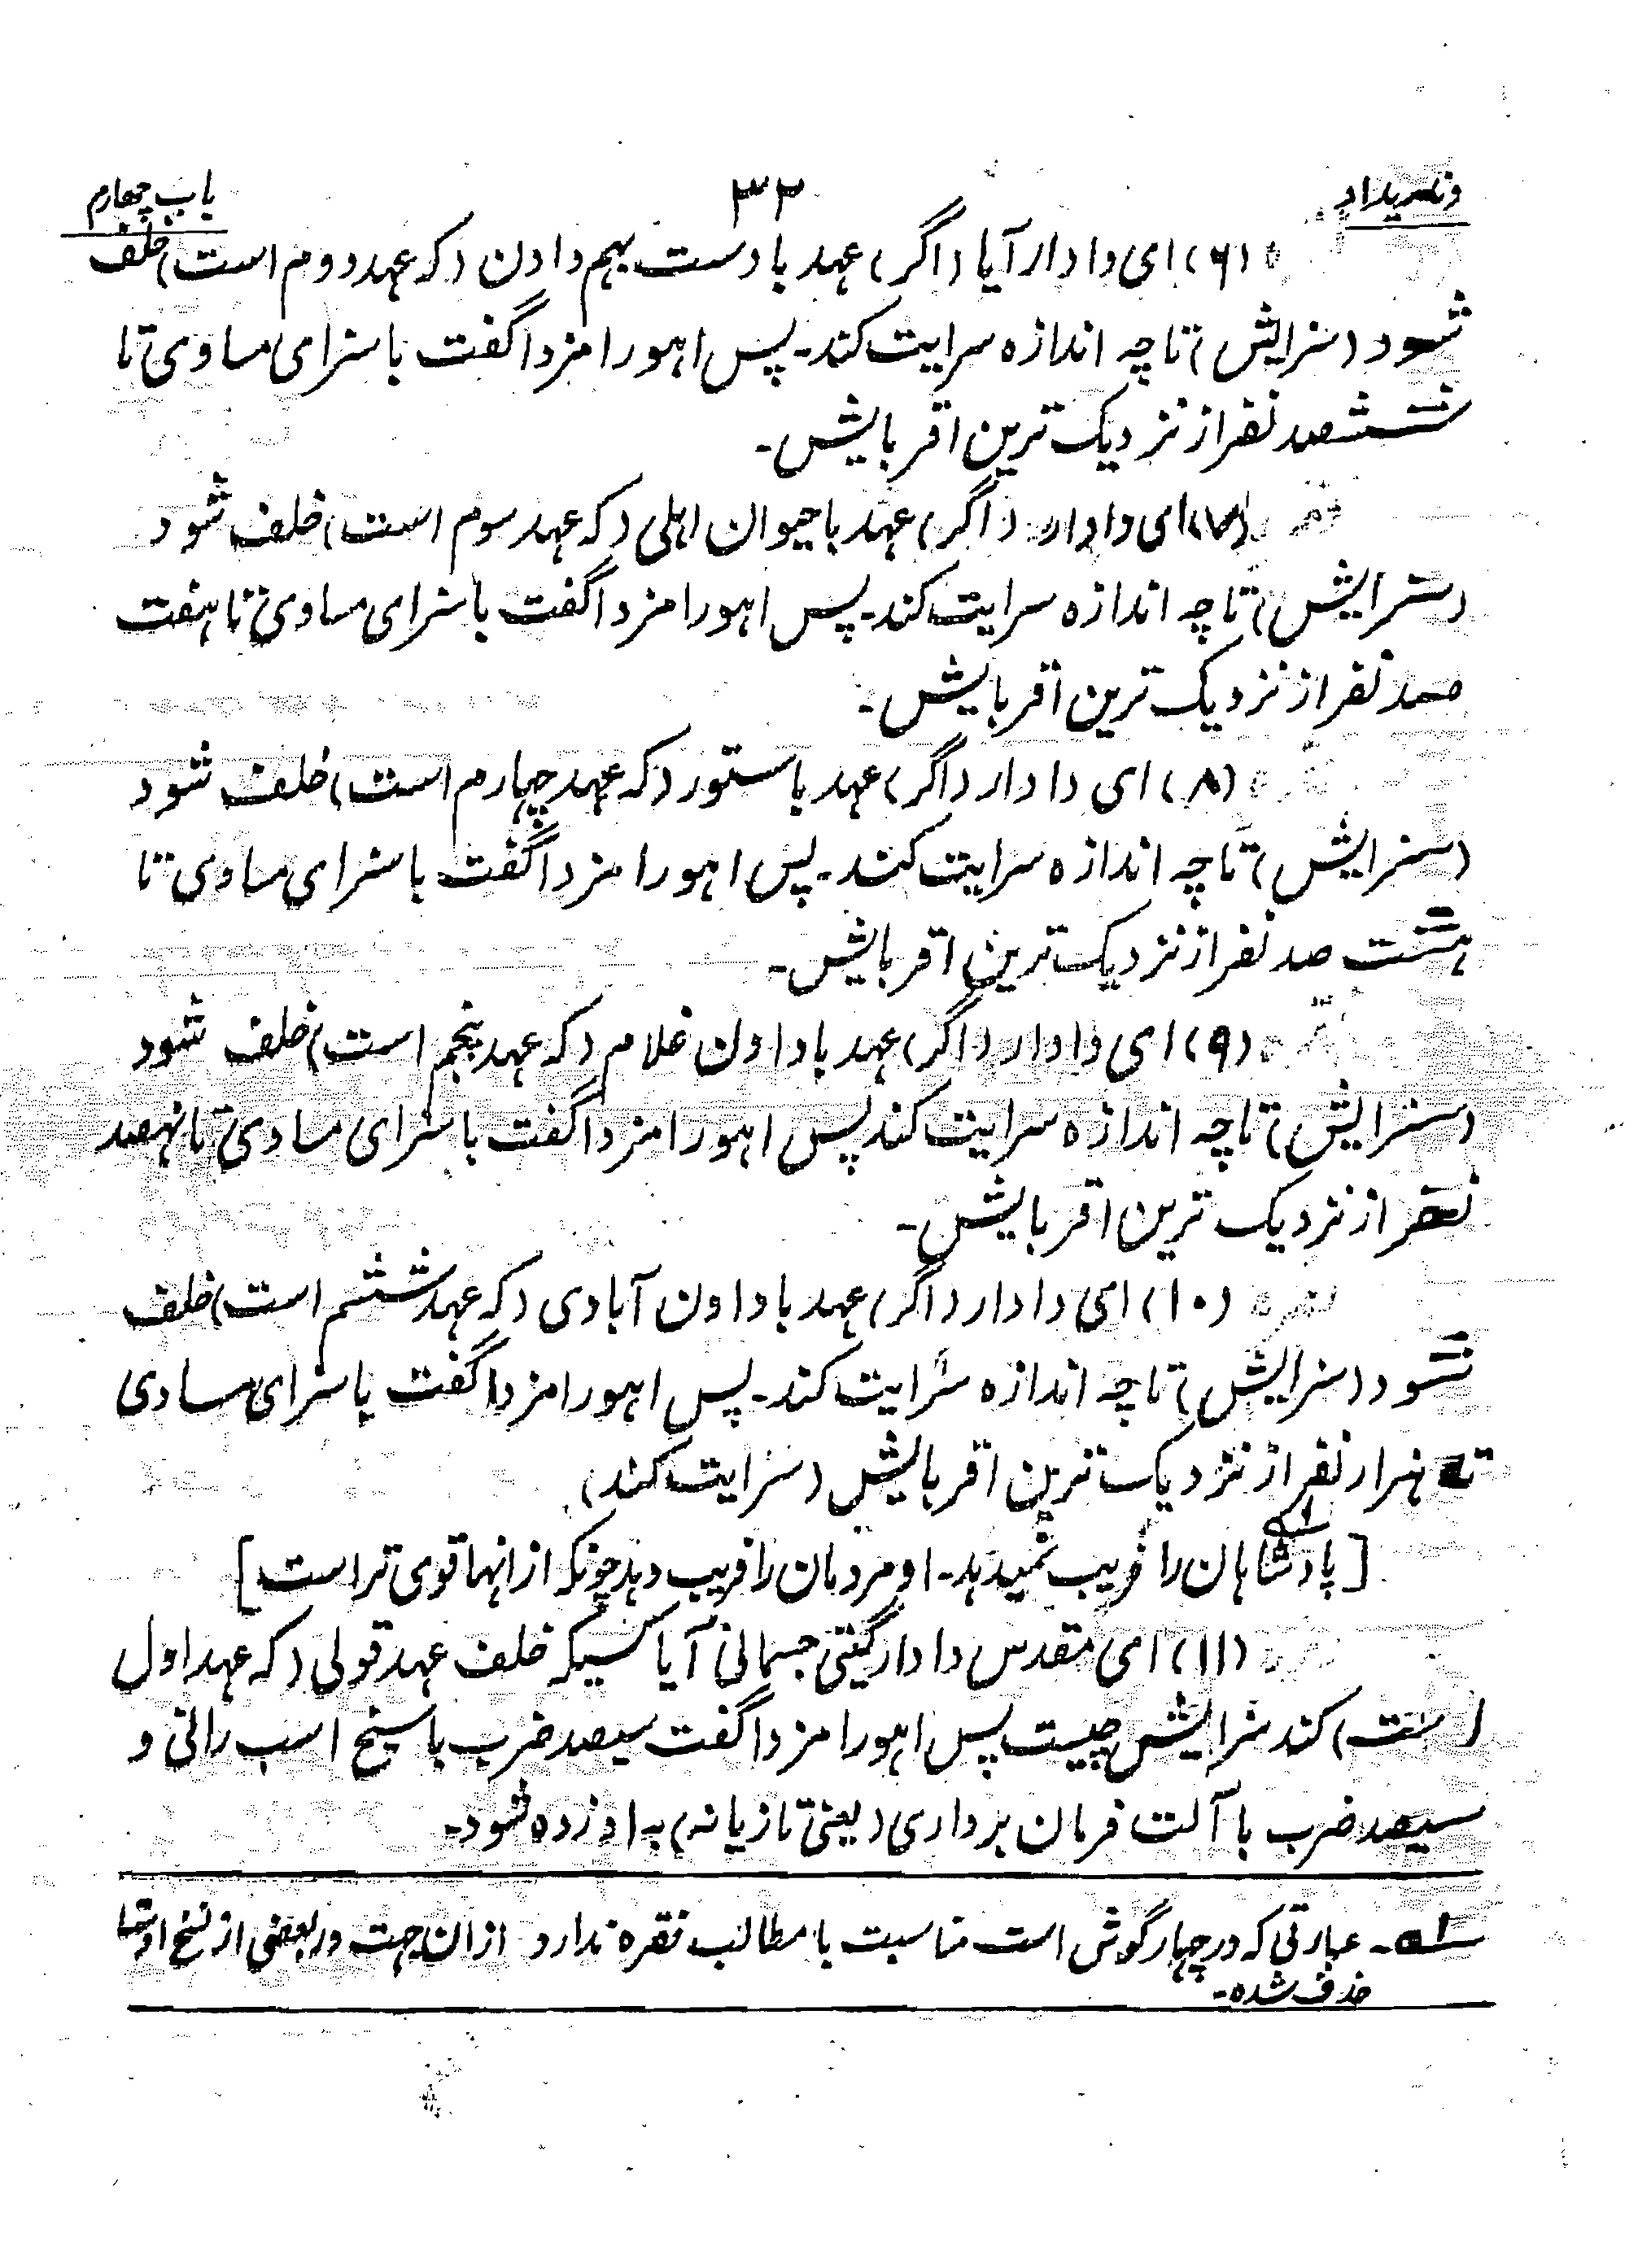 وندیداد ۳۲ باب چهارم
(۶) ای دادار آیا (اگر) عهد با دست بهم دادن (که عهد دوم است) خلف
شود (سزایش) تا چه اندازه سرایت کند۔ پس اهورا مزدا گفت با سزای مساوی تا
ششصد نفر از نزدیک ترین اقربایش۔
(۷) ای دادار (اگر) عهد با حیوان اهلی (که عهد سوم است) خلف شود
(سزایش) تا چه اندازه سرایت کند۔ پس اهورا مزدا گفت با سزای مساوی تا هفت
صد نفر از نزدیک ترین اقربایش۔
(۸) ای دادار (اگر) عهد با ستور (که عهد چهارم است) خلف شود
(سزایش) تا چه اندازه سرایت کند۔ پس اهورا مزدا گفت با سزای مساوی تا
هشت صد نفر از نزدیک ترین اقربایش۔
(۹) ای دادار (اگر) عهد با دادن غلام (که عهد پنجم است) خلف شود
(سزایش) تا چه اندازه سرایت کند پس اهورا مزدا گفت با سزای مساوی تا نهصد
نفر از نزدیک ترین اقربایش۔
(۱۰) ای دادار (اگر) عهد با دادن آبادی (که عهد ششم است) خلف
شود (سزایش) تا چه اندازه سرایت کند۔ پس اهورا مزدا گفت با سزای مساوی
تا هزار نفر از نزدیک ترین اقربایش (سرایت کند)
[پادشاهان را فریب نمیدهد۔ او مردمان را فریب دهد چونکه از انها قوی تر است]
(۱۱) ای مقدس دادار گیتی جسمانی آیا کسیکه خلف عهد قولی (که عهد اول
است) کند سزایش چیست پس اهورا مزدا گفت سیصد ضرب با سیخ اسب رانی و
سیصد ضرب با آلت فرمان برداری (یعنی تازیانه) به او زده شود۔
۱ه۔ عبارتی که در چهار گوش است مناسبت با مطالب فقره ندارد از ان جهت در بعضی از نسخ اوستا
حذف شده۔